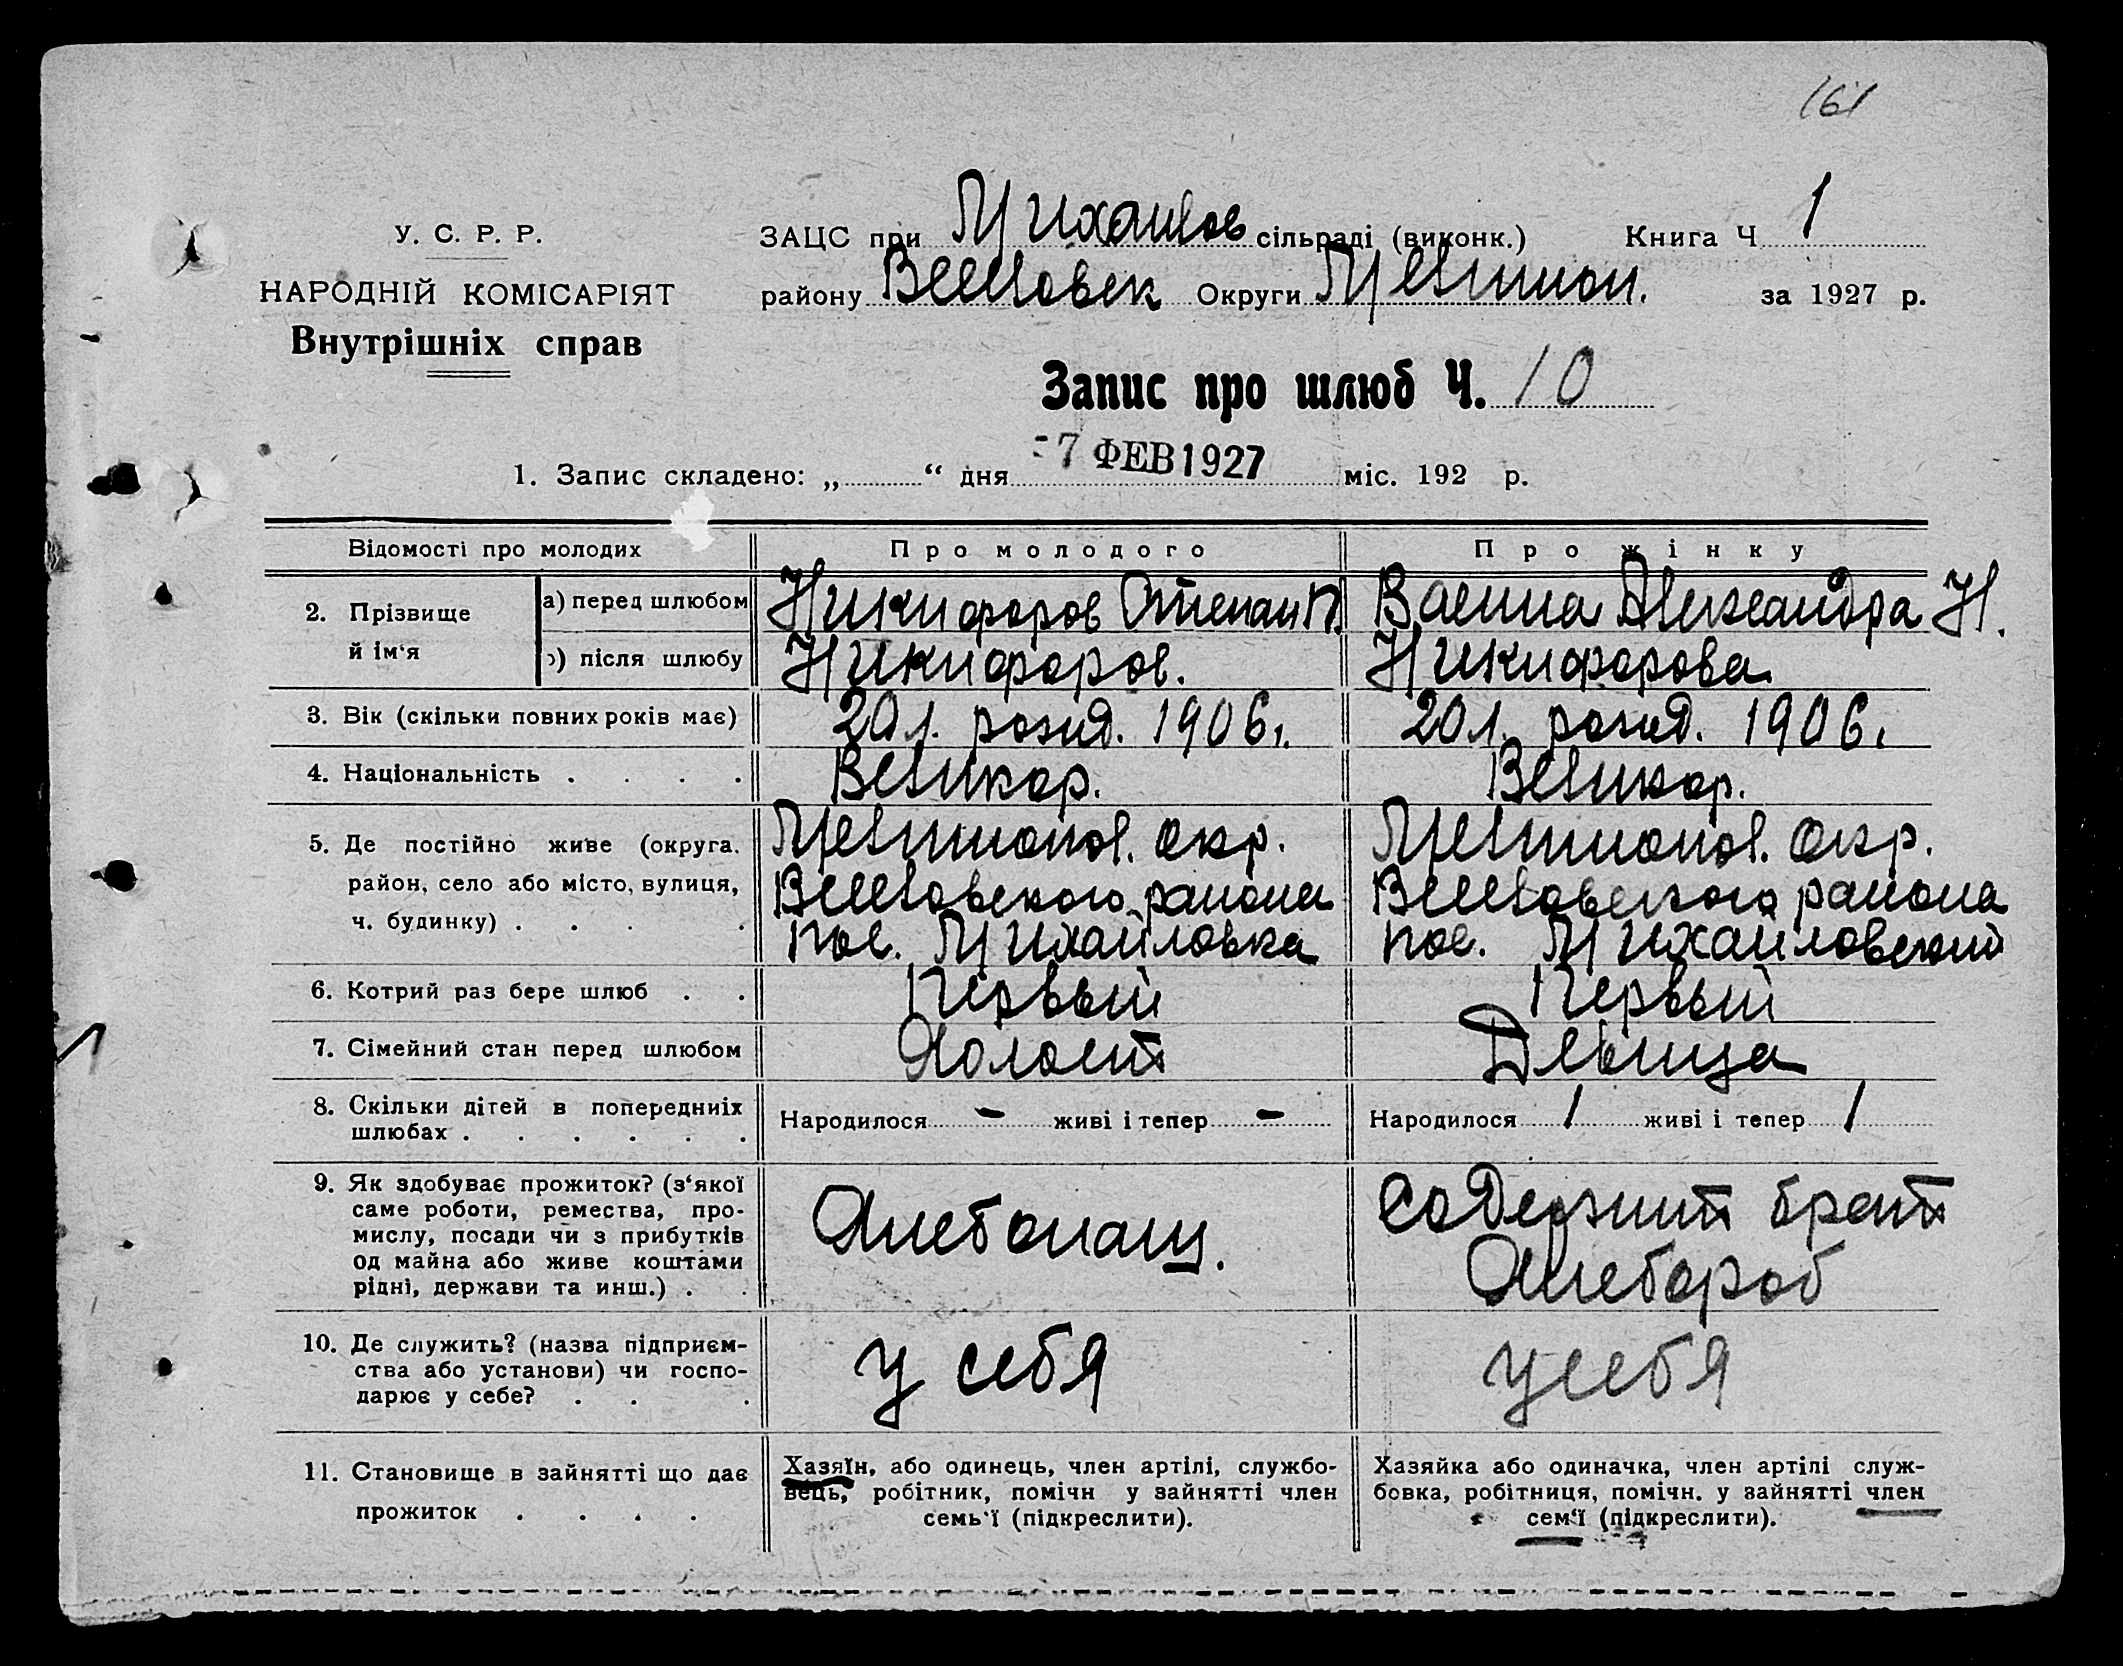 161
У. С. Р. Р.
НАРОДНІЙ КОМІСАРІЯТ
Внутрішніх справ
ЗАЦС при Михайлов сільраді (виконк.) Книга Ч 1
району Веселовск Округи Мелитоп. за 1927 р.
Запис про шлюб Ч. 10
1. Запис складено: „ “ дня -7 ФЕВ 1927 міс. 192 р.
Відомості про молодих Про молодого Про жінку
2. Прізвище й ім‘я
а) перед шлюбом Никифоров Степан П. Александра Н.
б) після шлюбу Никифоров. Никифорова
3. Вік (скільки повних років має) 20 л. рожд. 1906 г. 20 л. рожд. 1906.
4. Національність . . . . Великор. Великор.
5. Де постійно живе (округа, район, село або місто, вулиця, ч. будинку) . . . .
Мелитопол. окр.
Веселовского района
пос. Михайловка
Мелитопол. Окр.
Веселовского района
пос. Михайловский
6. Котрий раз бере шлюб . . Первый Первый
7. Сімейний стан перед шлюбом Холост Девица
8. Скільки дітей в попередниіх шлюбах . . . . . . Народилося - живі і тепер - Народилося 1 живі і тепер 1
9. Як здобуває прожиток? (з‘якої
саме роботи, ремества, про-
мислу, посади чи з прибутків
од майна або живе коштами
рідні, держави та инш.) . .
Хлебопащ.
содержит брат
Хлебороб
10. Де служить? (назва підприєм-
ства або установи) чи госпо-
дарює у себе? . . .
у себя
у себя
11. Становище в зайнятті що дає
прожиток . . . .
Хазяїн, або одинець, член артілі, службо-
вець, робітник, помічн у зайнятті член
семь‘ї (підкреслити).
Хазяйка або одиначка, член артілі служ-
бовка, робітниця, помічн. у зайнятті член
сем‘ї (підкреслити).